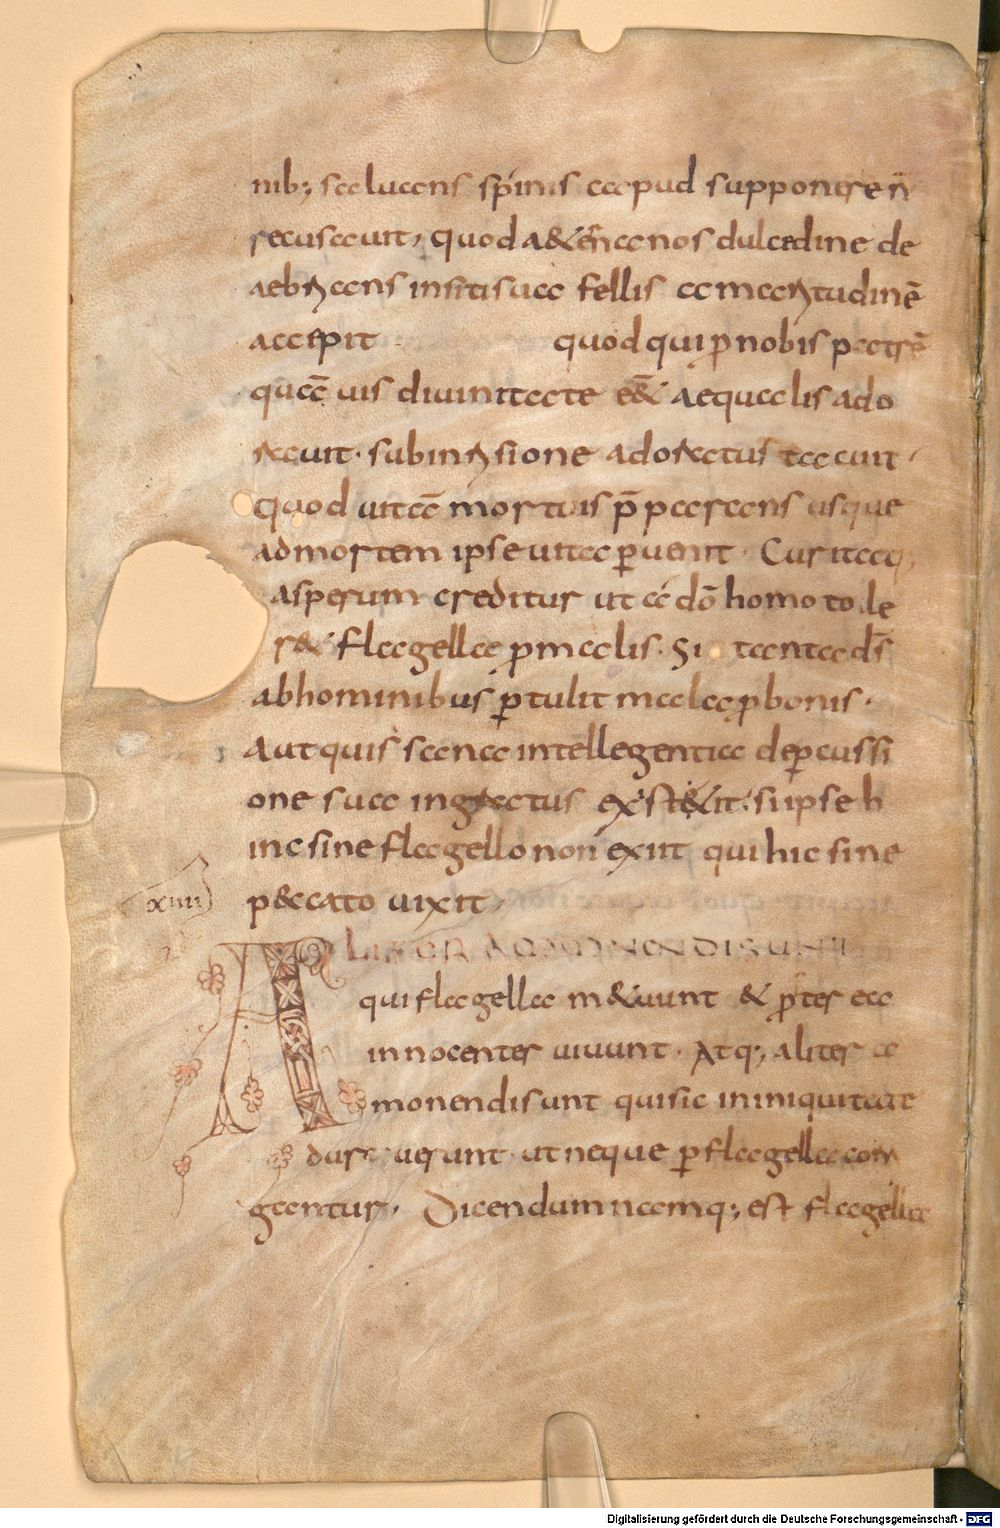 nib; saluans spinis caput supponere n̄
recusauit, quod a&ernanos dulcedine de
aebrians insiti sua fellis amaritudinē
accepit quod qui p nobis patrē
quā uis diuinitate eē& aequalis ado
rauit. subinrisione adoratus tacuit.
quod uitā mortuis p̄parans usque
admortem ipse uita peruenit. Cur itaq;
asperum creditur ut a dō homo tole
r& flagella pmalis. Si tanta ds̄
abhominibus ptulit mala pbonis.
Aut quis sana intellegentia depcussi
one sua ingratus exst&it. si ipse h
inc sine flagello non exiit qui hic sine
p&cato uixit,
xiiii
ALITER ADMONENDI SUNT
qui flagella m&uunt & pter ea
innocenter uiuunt. Atq; aliter a
monendi sunt qui sic in iniquitate
duruerunt. ut neque p flagella corri
gantur. Dicendum namq; est flagella
Digitalisierung gefördert durch die Deutsche Forschungsgemeinschaft - DFG